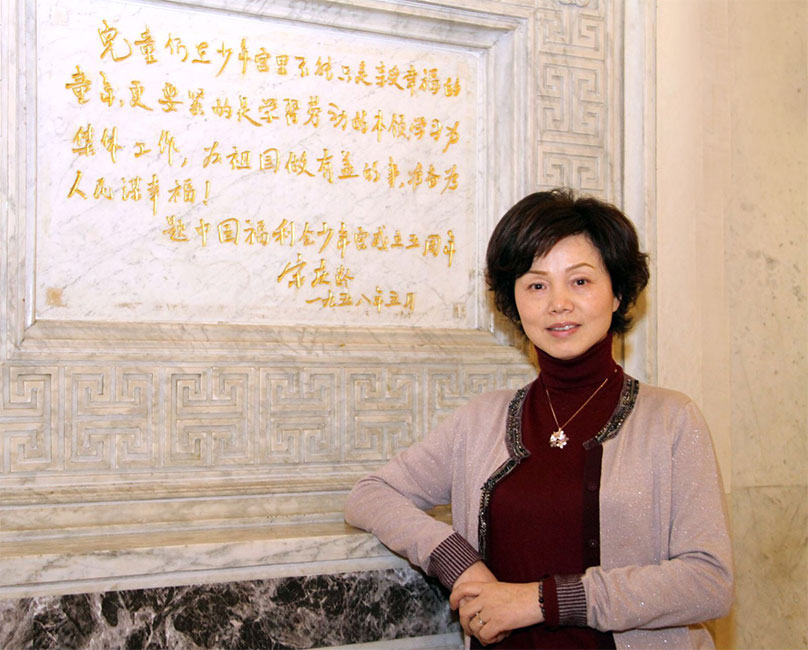 儿童们在少年宫里不能只是享受幸福的
童年,更要紧的是学习劳动的本领,学习为
集体工作,为祖国做有益的事,准备为
人民谋幸福!
题中国福利会少年宫成立五周年
宋庆龄
一九五八年五月